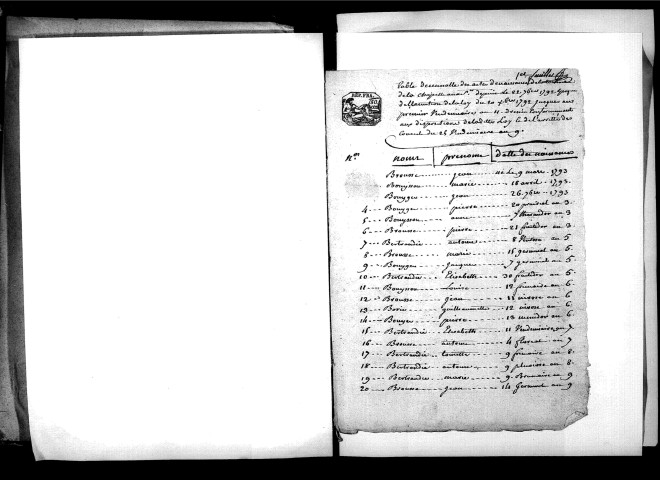 1er feuillet
REP. FRA.
Table decennalle des actes de naissances de la
de la Chapelle depuis le 22. 7bre 1792. Epoque
de l'execution de la Loy du 20 7bre 1792 jusques au
premier Vendemiaire an 11. dressée Conformement
aux dispositions de laditte Loy & de l'arretté des
Consul du 25 Vendemiaire an 9.
Nos noms prenoms datte des naissances
Brousse jean né le 9 mars 1793
Bouysson marie 18 avril 1793.
Bouyges jean 26. 7bre 1793
4 Bouyge pierre 20 prairial an 3
5 Bouysson anne 7 thermidor an 3.
6 Brousse pierre 21 fructidor an 3.
7 Bertrandie antoine 8 an 5
8 Brousse marie 15 germinal an 5.
9 Bouyges Jacques 7 germinal an 5.
10 Bertrandie Elizabette 30 fructidor an 6.
11 Bouysson Louise 12 frimaire an 6.
12 Brousse jean 11 nivose an 6
13 Borie guillaumette 12 nivose an 6.
14 Bouyge pierre 13 messidor an 6.
15 Bertrandie Elizabette 11 Vendemiaire an 7
16 Brousse antoine 4 floreal an 7
17 Bertrandie 9 frimaire an 8.
18 Bertrandie antoine 9 pluviose an 8.
19 Bertrandie marie 9 Brumaire an 9
20 Brousse jean 14 Germinal an 9